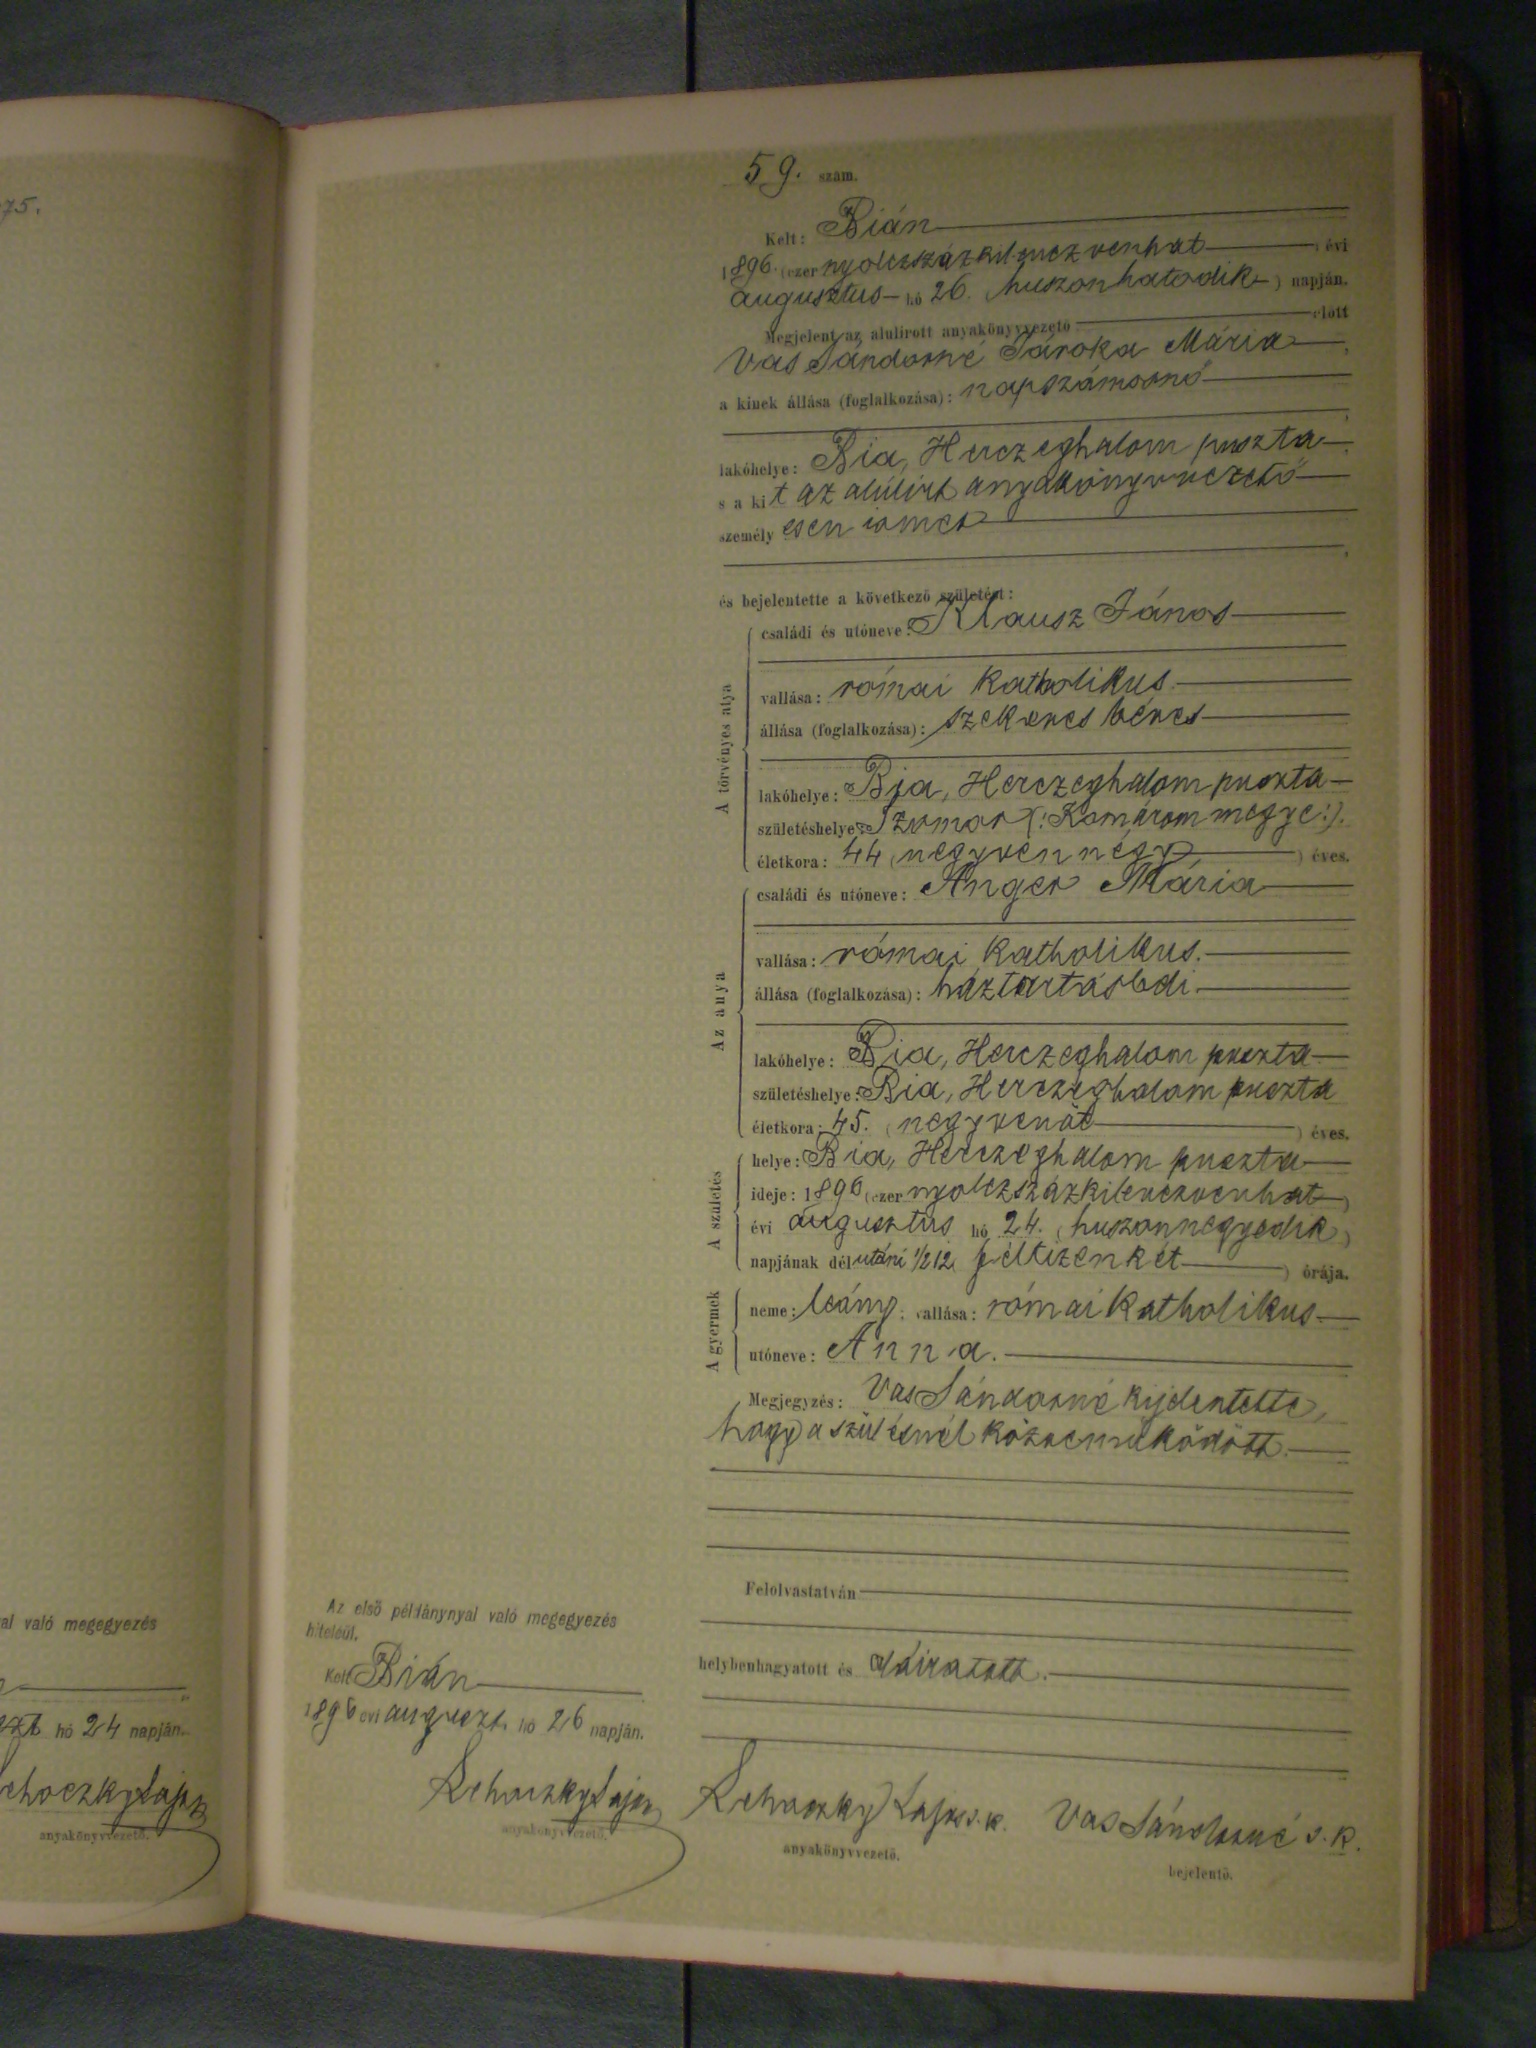 75.
al való megegyezés
hó 24 napján.
Lehoczky Lajos
anyakönyvvezető.
59. szám.
Kelt: Bián
1896. (ezer nyolczszázkilenczvenhat évi
augusztus hó 26. huszonhatodik ) napján.
Megjelent az alulírott anyakönyvvezető előtt
Vas Sándorné Jároka Mária ,
a kinek állása (foglalkozása): napszámosnő
lakóhelye: Bia, Herczeghalom puszta
s a kit az alúlirt anyakönyvvezető
személyesen ismer
és bejelentette a következő születést:
A törvényes atya
családi és utóneve: Klausz János
vallása: római katholikus
állása (foglalkozása): szekeres béres
lakóhelye: Bia, Herczeghalom puszta
születéshelye: Szomor (: Komárom megye :).
életkora: 44 ( negyvennégy ) éves.
Az anya
családi és utóneve: Anger Mária
vallása: római katholikus.
állása (foglalkozása): háztartásbdi
lakóhelye: Bia, Herczeghalom puszta
születéshelye: Bia, Herczeghalom puszta
életkora: 45. ( negyvenöt ) éves.
A születés
helye: Bia, Herczeghalom puszta
ideje: 1896 (ezer nyolczszázkilenczvenhat )
évi augusztus hó 24. ( huszonnegyedik )
napjának délutáni 1/2 12 ( féltizenkét ) órája.
A gyermek
neme: leány; vallása: római katholikus
utóneve: Anna.
Megjegyzés: Vas Sándorné kijelentette,
hogy a szülésnél közremüködött.
Felolvastatván
helybenhagyatott és aláiratott.
Lehoczky Lajos s. k. Vas Sándorné s. k.
anyakönyvvezető. bejelentő.
Az első példánynyal való megegyezés
hiteléül.
Kelt Bián
1896 évi auguszt. hó 26 napján.
Lehoczky Lajos
anyakönyvvezető.